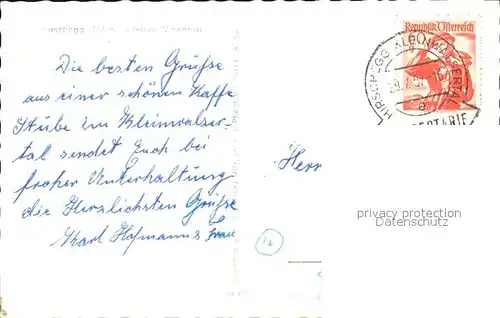 Hirschegg
Die besten Grüße
aus einer schönen Kaffe
Stube im Kleinwalser-
tal sendet Euch bei
froher Unterhaltung
die Herzlichsten Grüße
Karl Hofmann u Frau
Herrn
Republik Österreich
HIRSCHEGG KLEINWALSERTAL
privacy protection
Datenschutz